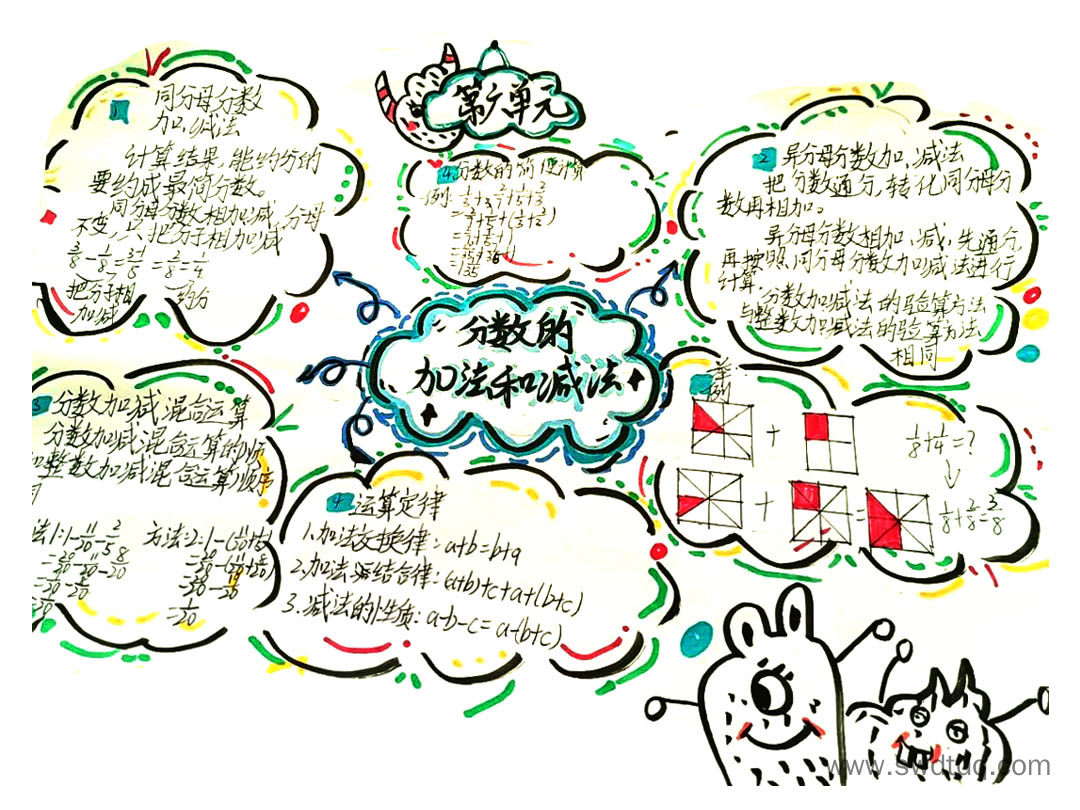 第六单元
1 同分母分数
加,减法
计算结果,能约分的
要约成最简分数。
同分母分数相加减,分母
不变,只把分子相加减
3/8-1/8=3-1/8=2/8=1/4
把分子相
加减
约分
4 分数的简便计算
例:
2 异分母分数加,减法
把分数通分,转化同分母分
数再相加。
异分母分数相加,减,先通分,
再按照,同分母分数加减法进行
计算,
分数加减法的验算方法
与整数加减法的验算方法
相同
分数的
加法和减法
举
例
+
1/8+1/4=?
+ =
1/8+2/8=3/8
3 分数加减混合运算
分数加减混合运算的顺
和整数加减混合运算顺序
法1:1-11/20-2/5
=20/20-11/20-8/20
=9/20-8/20
=1/20
方法2:1-(11/20+2/5)
=1/20
4 运算定律
1.加法交换律:a+b=b+a
2.加法结合律:(a+b)+c+a+(b+c)
3.减法的性质:a-b-c=a-(b+c)
www.swdtuo.com